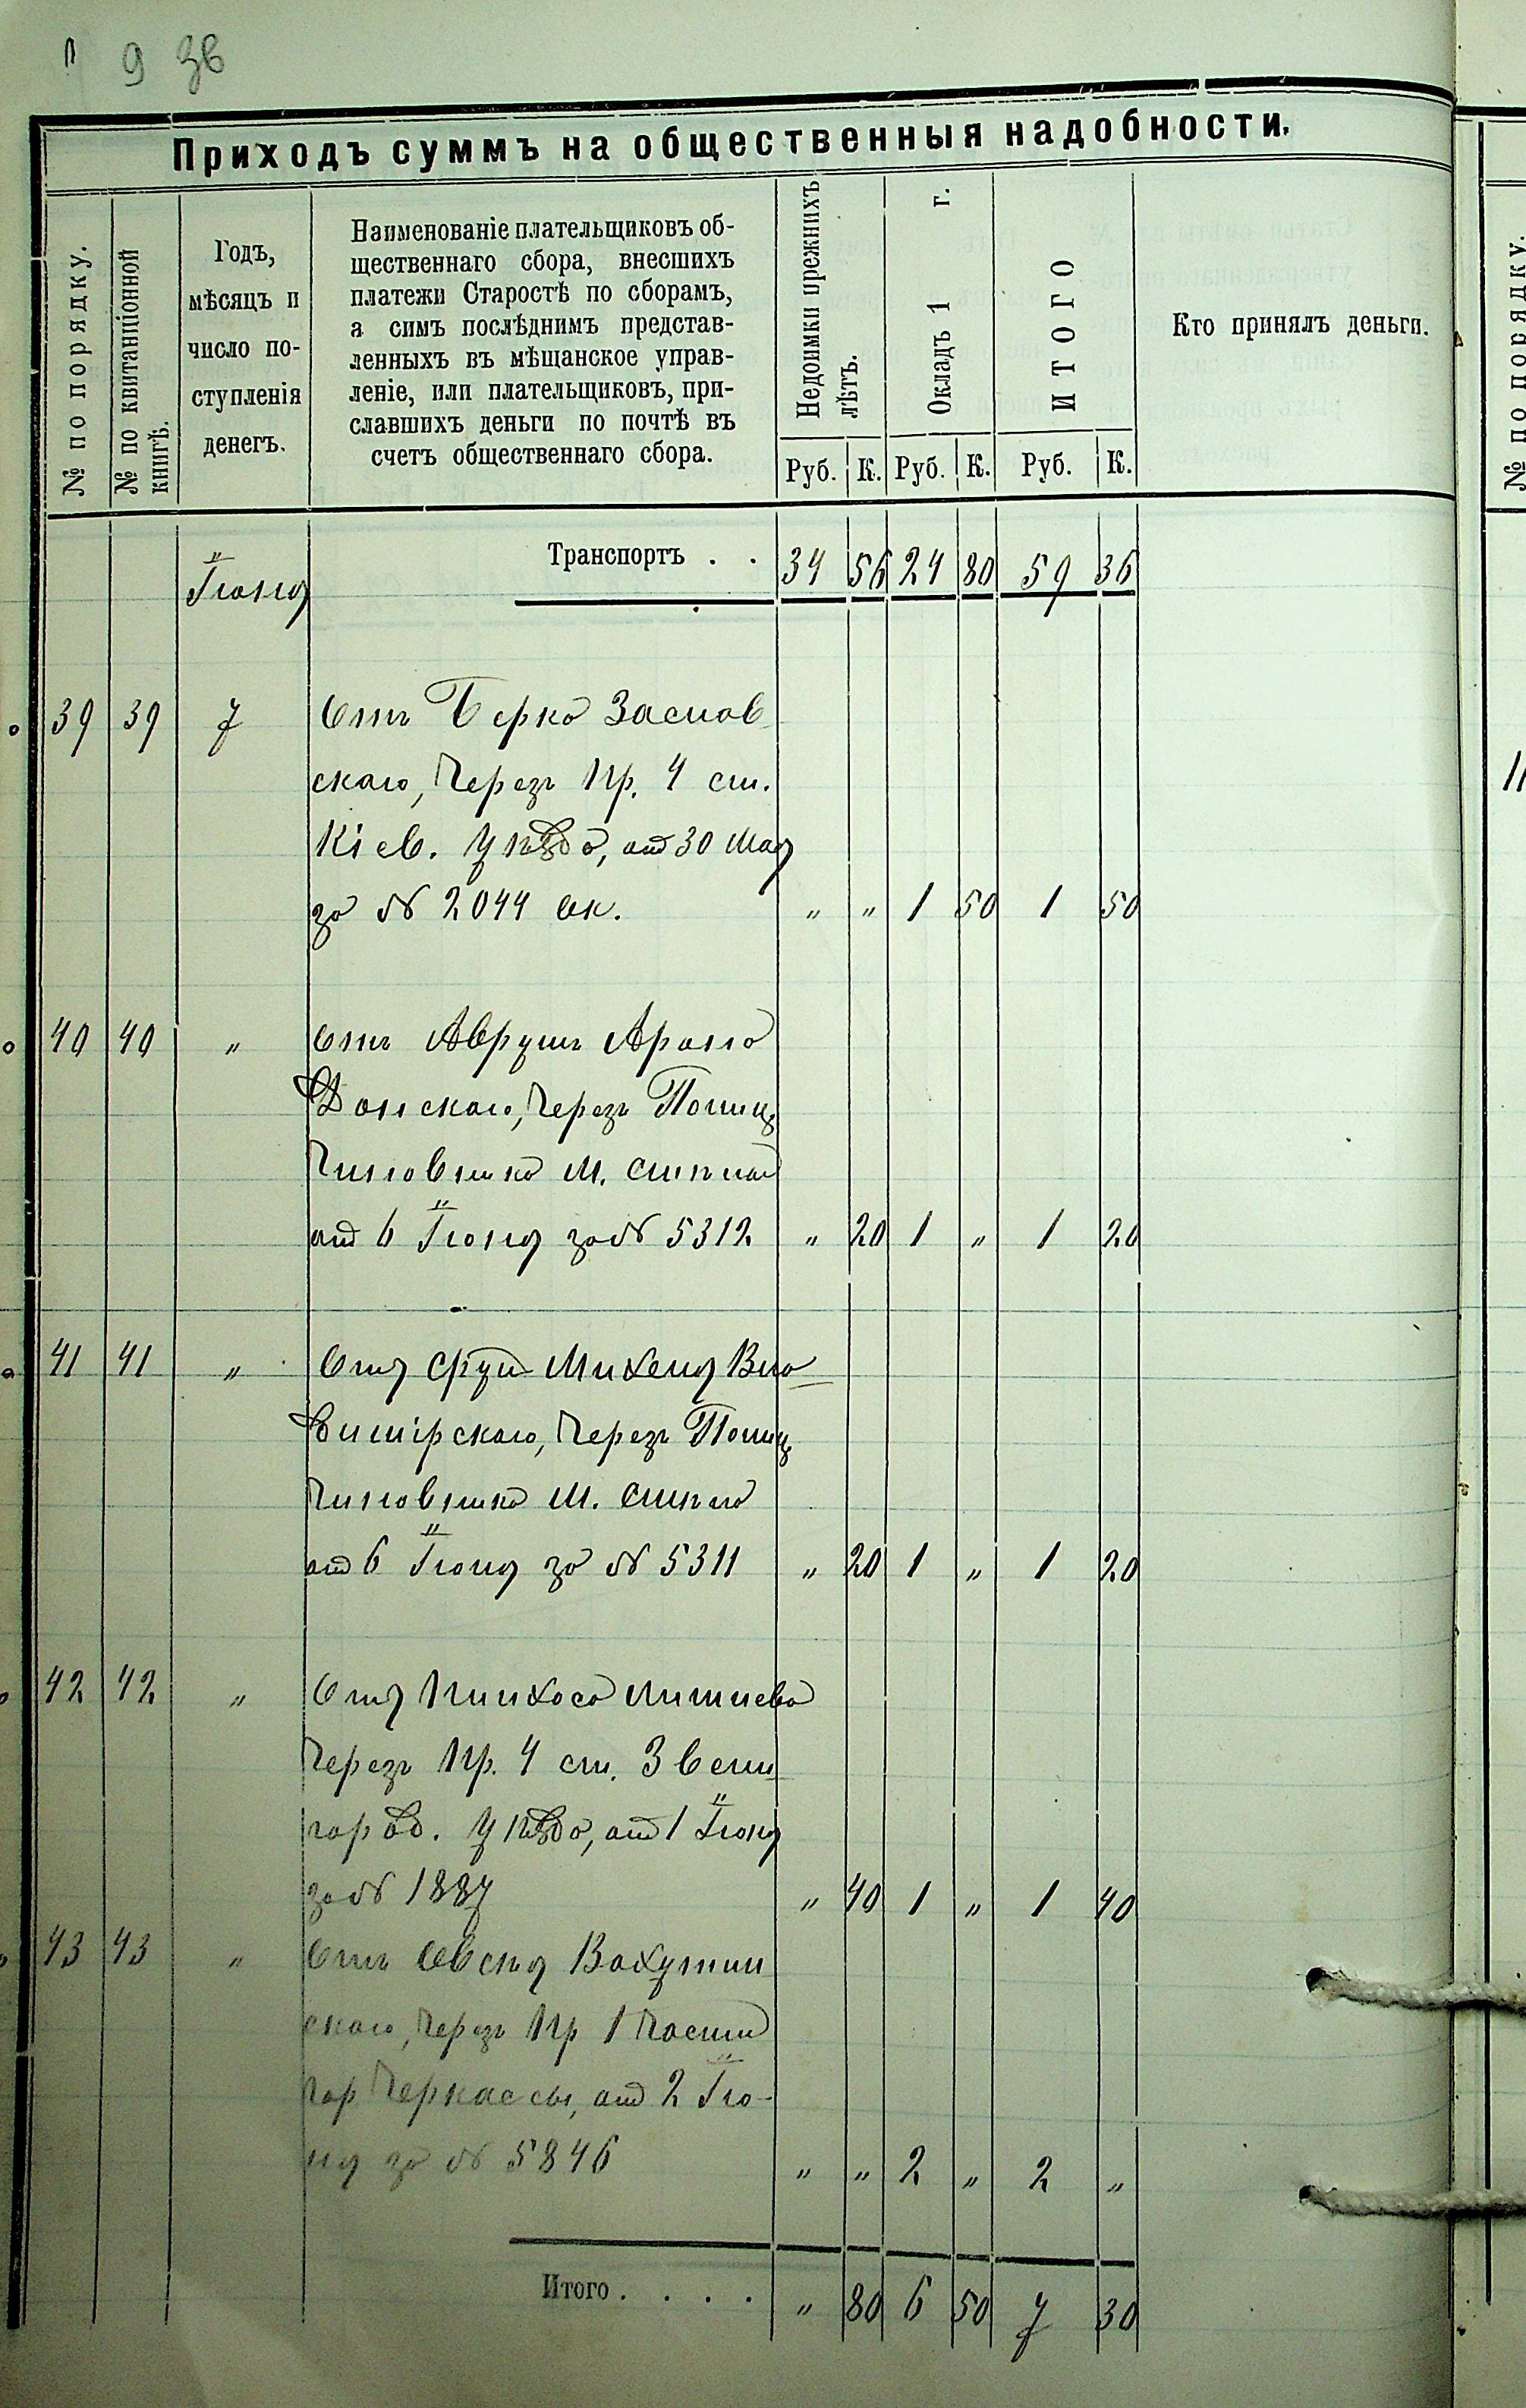 9 зв
Приходъ суммъ на общественныя надобности.
№ по порядку.
№ по квитанціонной
книгѣ.
Годъ,
мѣсяцъ и
число по-
ступленія
денегъ.
Наименованіе плательщиковъ об-
щественнаго сбора, внесшихъ
платежи Старостѣ по сборамъ,
а симъ послѣднимъ представ-
ленныхъ въ мѣщанское управ-
леніе, или плательщиковъ, при-
славшихъ деньги по почтѣ въ
счетъ общественнаго сбора.
Недоимки прежнихъ
лѣтъ.
Окладъ 1 г.
ИТОГО
Кто принялъ деньги.
Руб. К. Руб. К. Руб. К.
№ по порядку.
Іюня
Транспортъ . . 34 56 24 80 59 36
39 39 7 Отъ Берко Заслав
скаго, Черезъ Пр. 4 ст.
Кіев. уѣзда, от 30 Мая
за № 2044 ок. " " 1 50 1 50
40 40 " Отъ Аврумъ Арона
Донскаго, Черезъ Полиц
Чиновника М.
от 6 Іюня за № 5312 " 20 1 " 1 20
41 41 " Отъ Сруля Михеля Вла
димірскаго, Черезъ Полиц
Чиновника М.
от 6 Іюня за № 5311 " 20 1 " 1 20
42 42 " Отъ Пинхоса
Черезъ Пр. 4 ст. Звени
город. уѣзда, от 1 Іюня
за № 1887 " 40 1 " 1 40
43 43 " Отъ Овсѣя Вахутин
скаго, Черезъ Пр 1 Части
гор Черкассы, от 2 Ію-
ня за № 5846 " " 2 " 2 "
Итого . . . . " 80 6 50 7 30